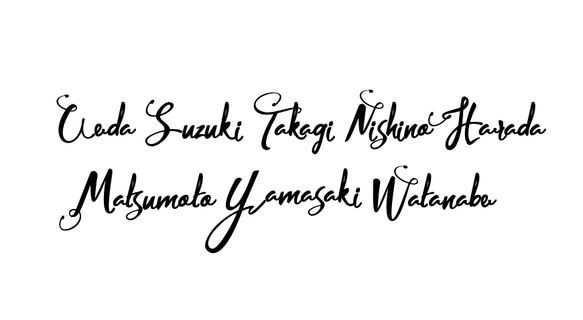 Ueda Suzuki Takagi Nishino Harada
Matsumoto Yamasaki Watanabe